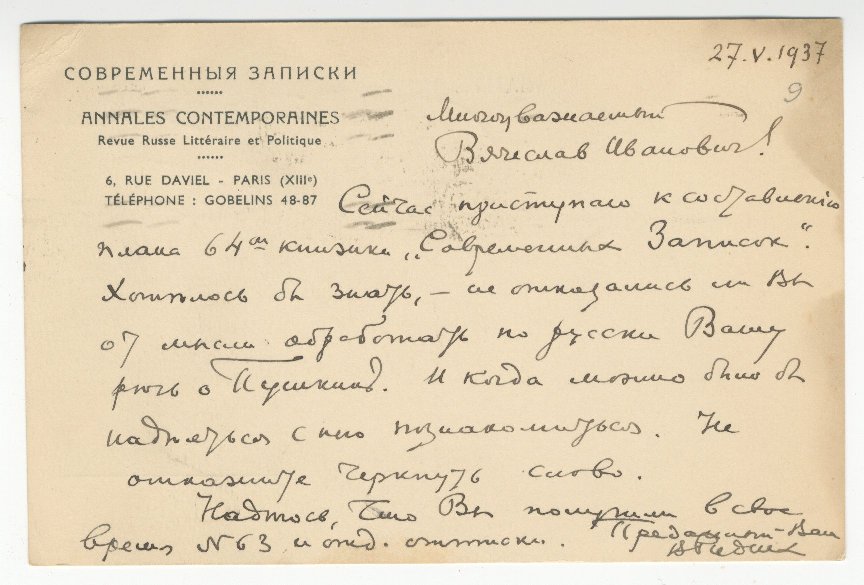 27.V.1937
9
СОВРЕМЕННЫЯ ЗАПИСКИ
ANNALES CONTEMPORAINES
Revue Russe Littéraire et Politique
6, RUE DAVIEL - PARIS (XIIIe)
TÉLÉPHONE : GOBELINS 48-87
Многоуважаемый
Вячеслав Иванович!
Сейчас приступаю к составленію
плана 64ой книжки „Современных Записок“.
Хотѣлось бы знать, – не отказались ли Вы
от мысли обработать по русски Вашу
рѣчь о Пушкинѣ. И когда можно было бы
надѣяться с нею познакомиться. Не
откажите черкнуть слово.
Надѣюсь, что Вы получили в свое
время N 63 и отд. оттиски.
Преданный Вам
В Руднев